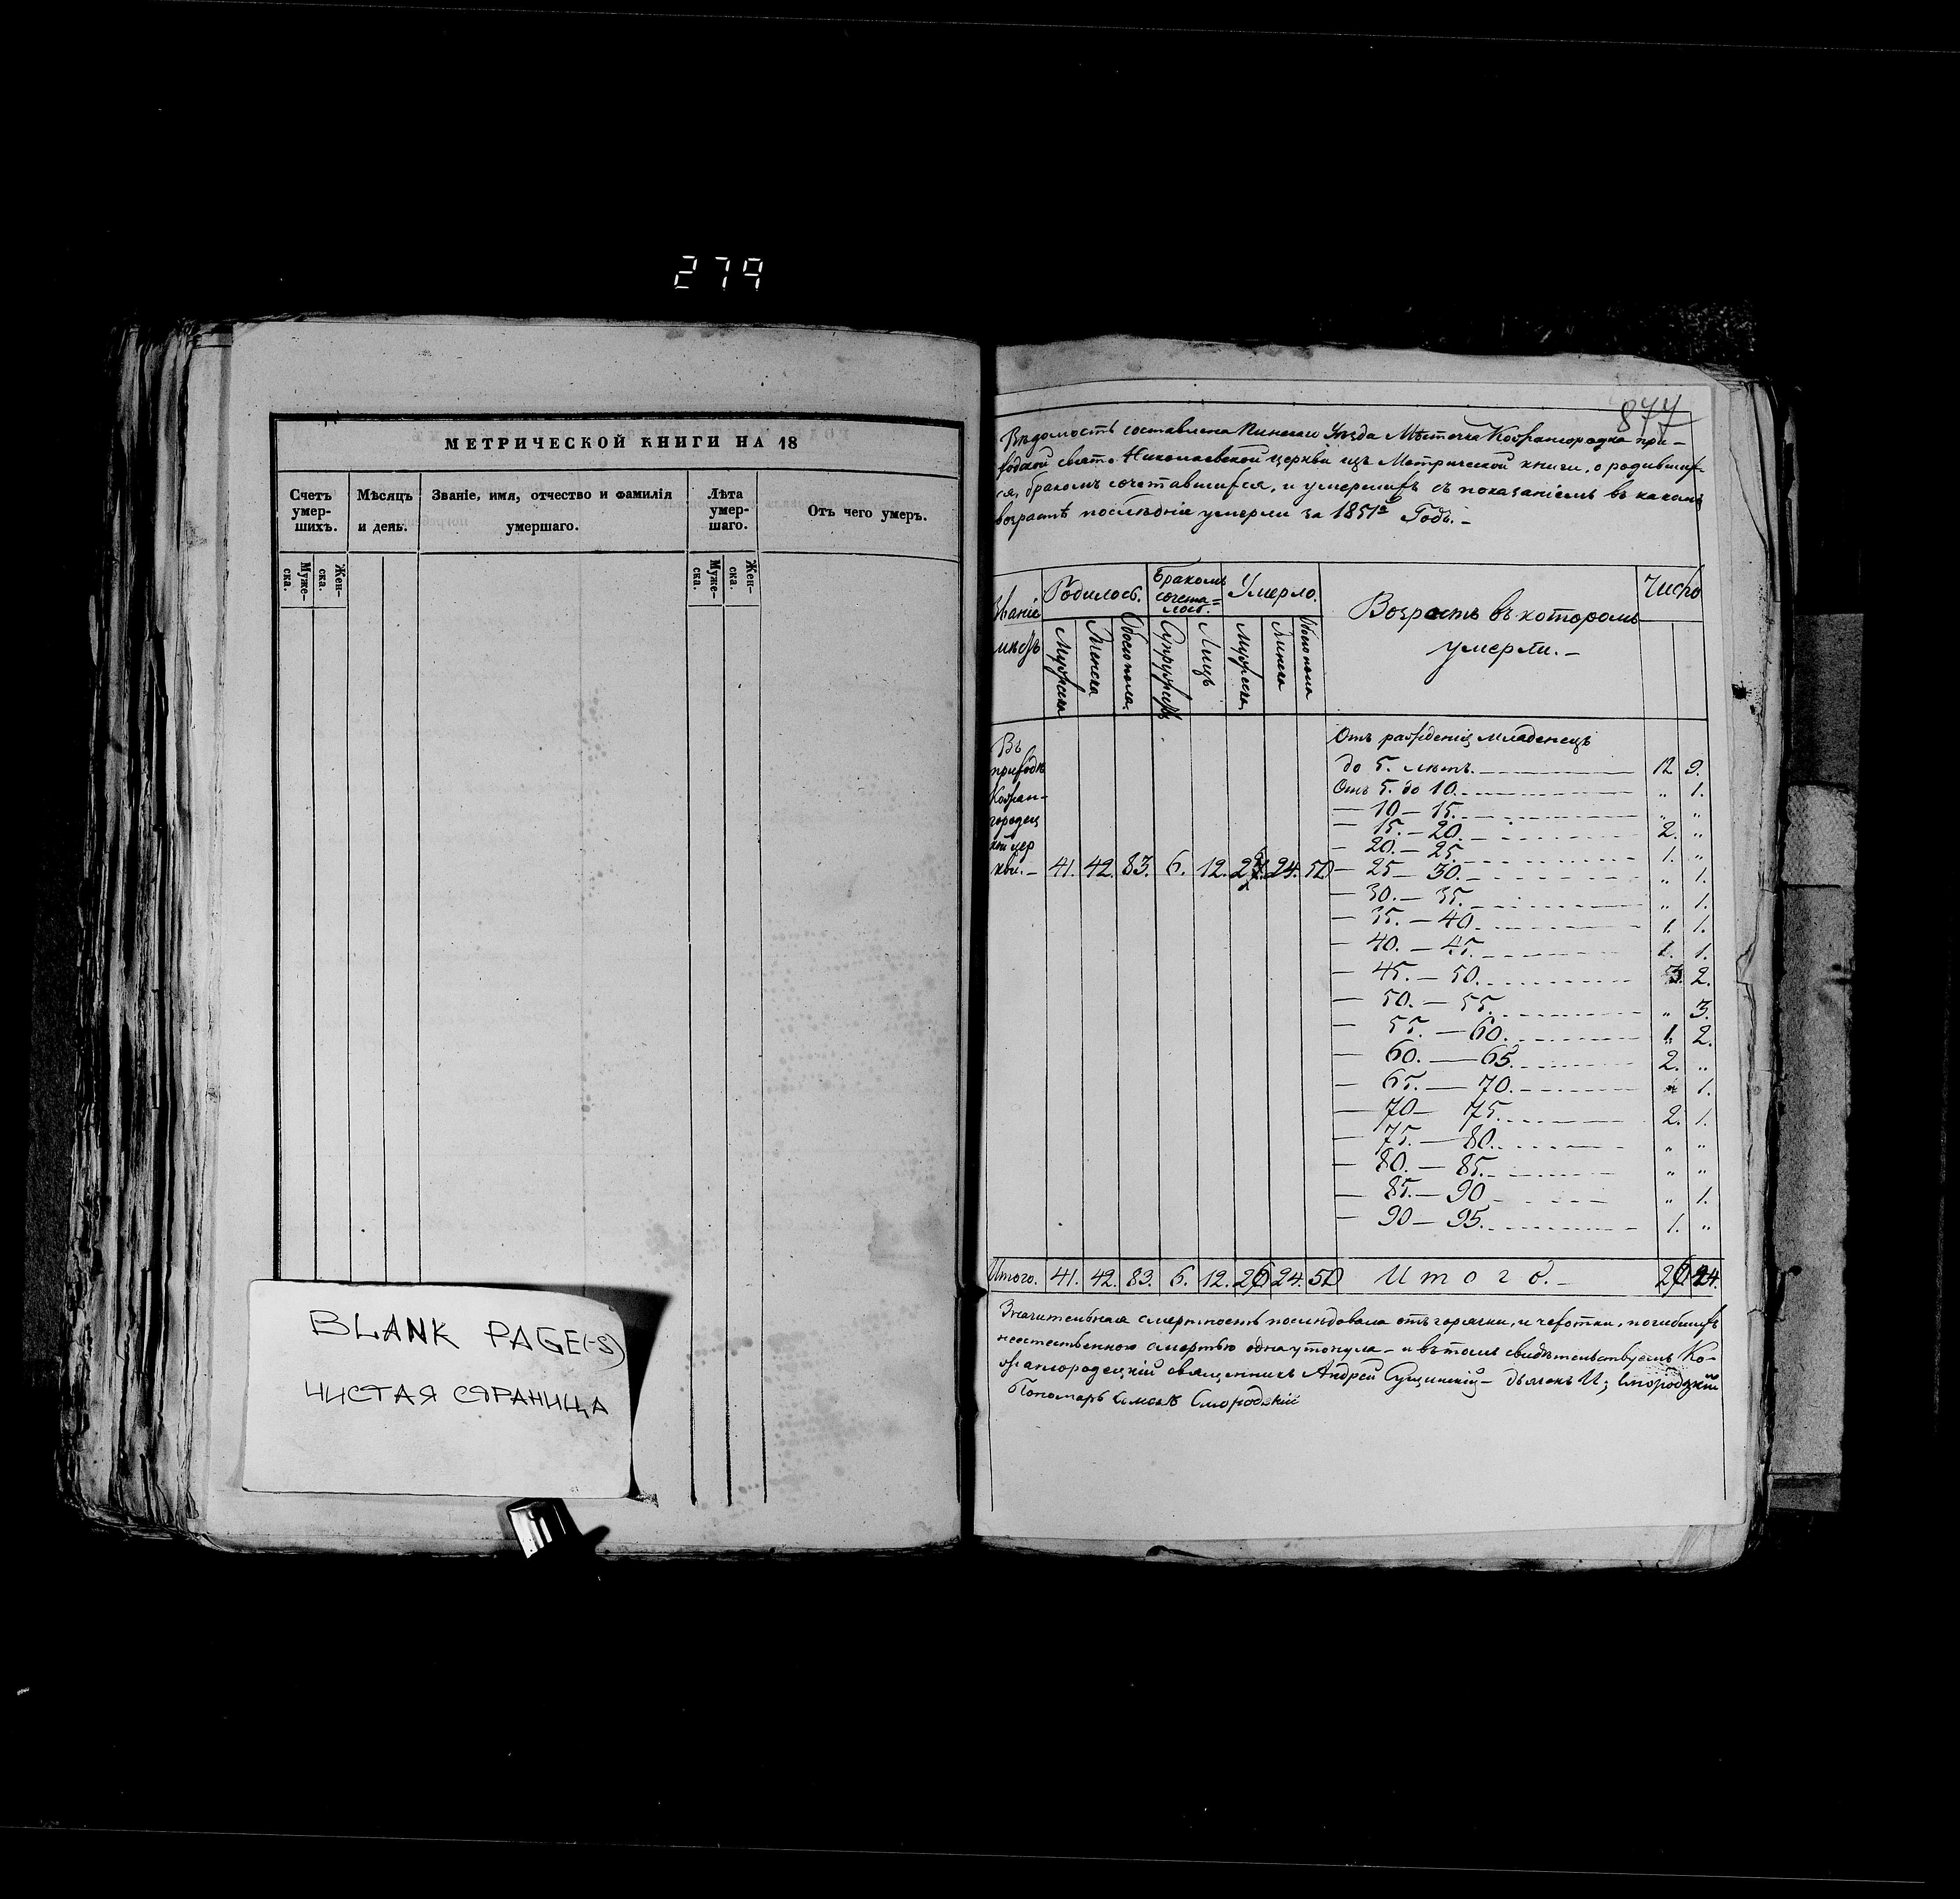 279
МЕТРИЧЕСКОЙ КНИГИ НА 18
Счетъ умер-шихъ. Мѣсяцъ и день. Званіе, имя, отчество и фамилія умершаго. Лѣта умер-шаго. Отъ чего умеръ.
Муже-ска. Жен-ска. Муже-ска. Жен-ска.
BLANK PAGE(-S)
ЧИСТАЯ СТРАНИЦА
877
Вѣдомость составлена Пинскаго Уѣзда Мѣстечка Кожангородка при-
ходской свято Николаевской церкви изъ Метрической книги, о родивших-
ся, бракомъ сочетавшихся, и умершихъ съ показаніемъ въ какомъ
возрастѣ послѣдніе умерли за 1851й Годъ.-
Званіе Родилось. Бракомъ сочета=лось. Умерло. Возрастъ въ которомъ умерли.- Число
Мужеска Женска Обоего пола Супружествъ Лицъ Мужеска Женска Обоего пола
Отъ рожденія младенецъ
Въ
приходѣ до 5. лѣтъ. 12 9.
Кожан- Отъ 5. до 10. „ 1.
городец — 10 — 15. „ „
— 15. — 20. 2. „
кой цер — 20. — 25. 1. „
кви.- 41. 42. 83. 6. 12. 24. — 25 — 30. „ 1.
— 30. — 35. „ 1.
— 35. — 40. 1. 1.
— 40. — 45. 1. 1.
— 45. — 50. 3. 2.
— 50. — 55. „ 3.
— 55. — 60. 1. 2.
— 60. — 65. 2. „
— 65. — 70. „ 1.
— 70 — 75. 2. 1.
— 75. — 80. „ „
— 80. — 85. „ „
— 85. — 90 „ 1.
— 90 — 95. 1. „
Итого. 41. 42. 83. 6. 12. 26 24. 50 Итого.- 26 24.
Значительная смертность послѣдовала отъ горячки, и чахотки, погибшихъ
неестественною смертью одна утонула - и въ томъ свидѣтельствуемъ Ко-
жангородецкій священникъ Андрей Сущинскій - дьячекъ И; Смородскій
Пономарь Смородскій